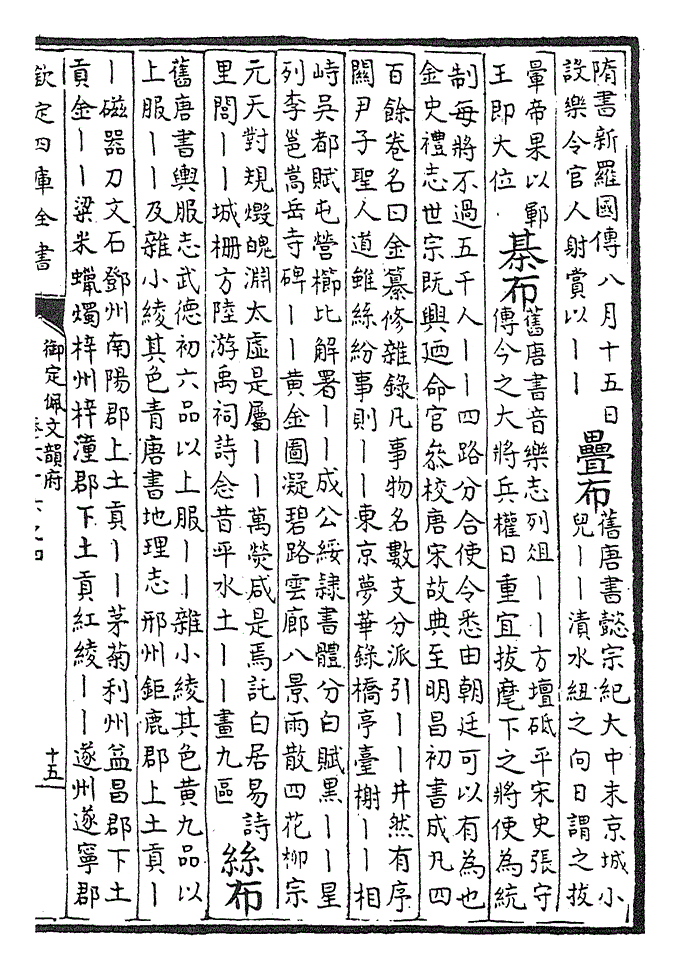 隋書新羅國傳八月十五日
設樂令官人射賞以丨丨
疊布
舊唐書懿宗紀大中末京城小
兒丨丨漬水紐之向日謂之拔
暈帝果以鄆
王即大位
棊布
舊唐書音樂志列俎丨丨方壇砥平宋史張守
傳今之大將兵權日重宜拔麾下之將使為統
制每將不過五千人丨丨四路分合使令悉由朝廷可以有為也
金史禮志世宗既興廼命官叅校唐宋故典至明昌初書成凡四
百餘卷名曰金纂修雜錄凡事物名數支分派引丨丨井然有序
關尹子聖人道雖絲紛事則丨丨東京夢華錄橋亭臺榭丨丨相
峙吳都賦屯營櫛比解署丨丨成公綏隸書體分白賦黑丨丨星
列李邕嵩岳寺碑丨丨黃金圖凝碧路雲廊八景雨散四花柳宗
元天對規燬魄淵太虛是屬丨丨萬熒咸是焉託白居易詩
里閭丨丨城柵方陸游禹祠詩念昔平水土丨丨畫九區
絲布
舊唐書輿服志武德初六品以上服丨丨雜小綾其色黃九品以
上服丨丨及雜小綾其色青唐書地理志邢州鉅鹿郡上土貢丨
丨磁器刀文石鄧州南陽郡上土貢丨丨茅菊利州益昌郡下土
貢金丨丨梁米蠟燭梓州梓潼郡下土貢紅綾丨丨遂州遂寧郡
欽定四庫全書
御定佩文韻府
十五